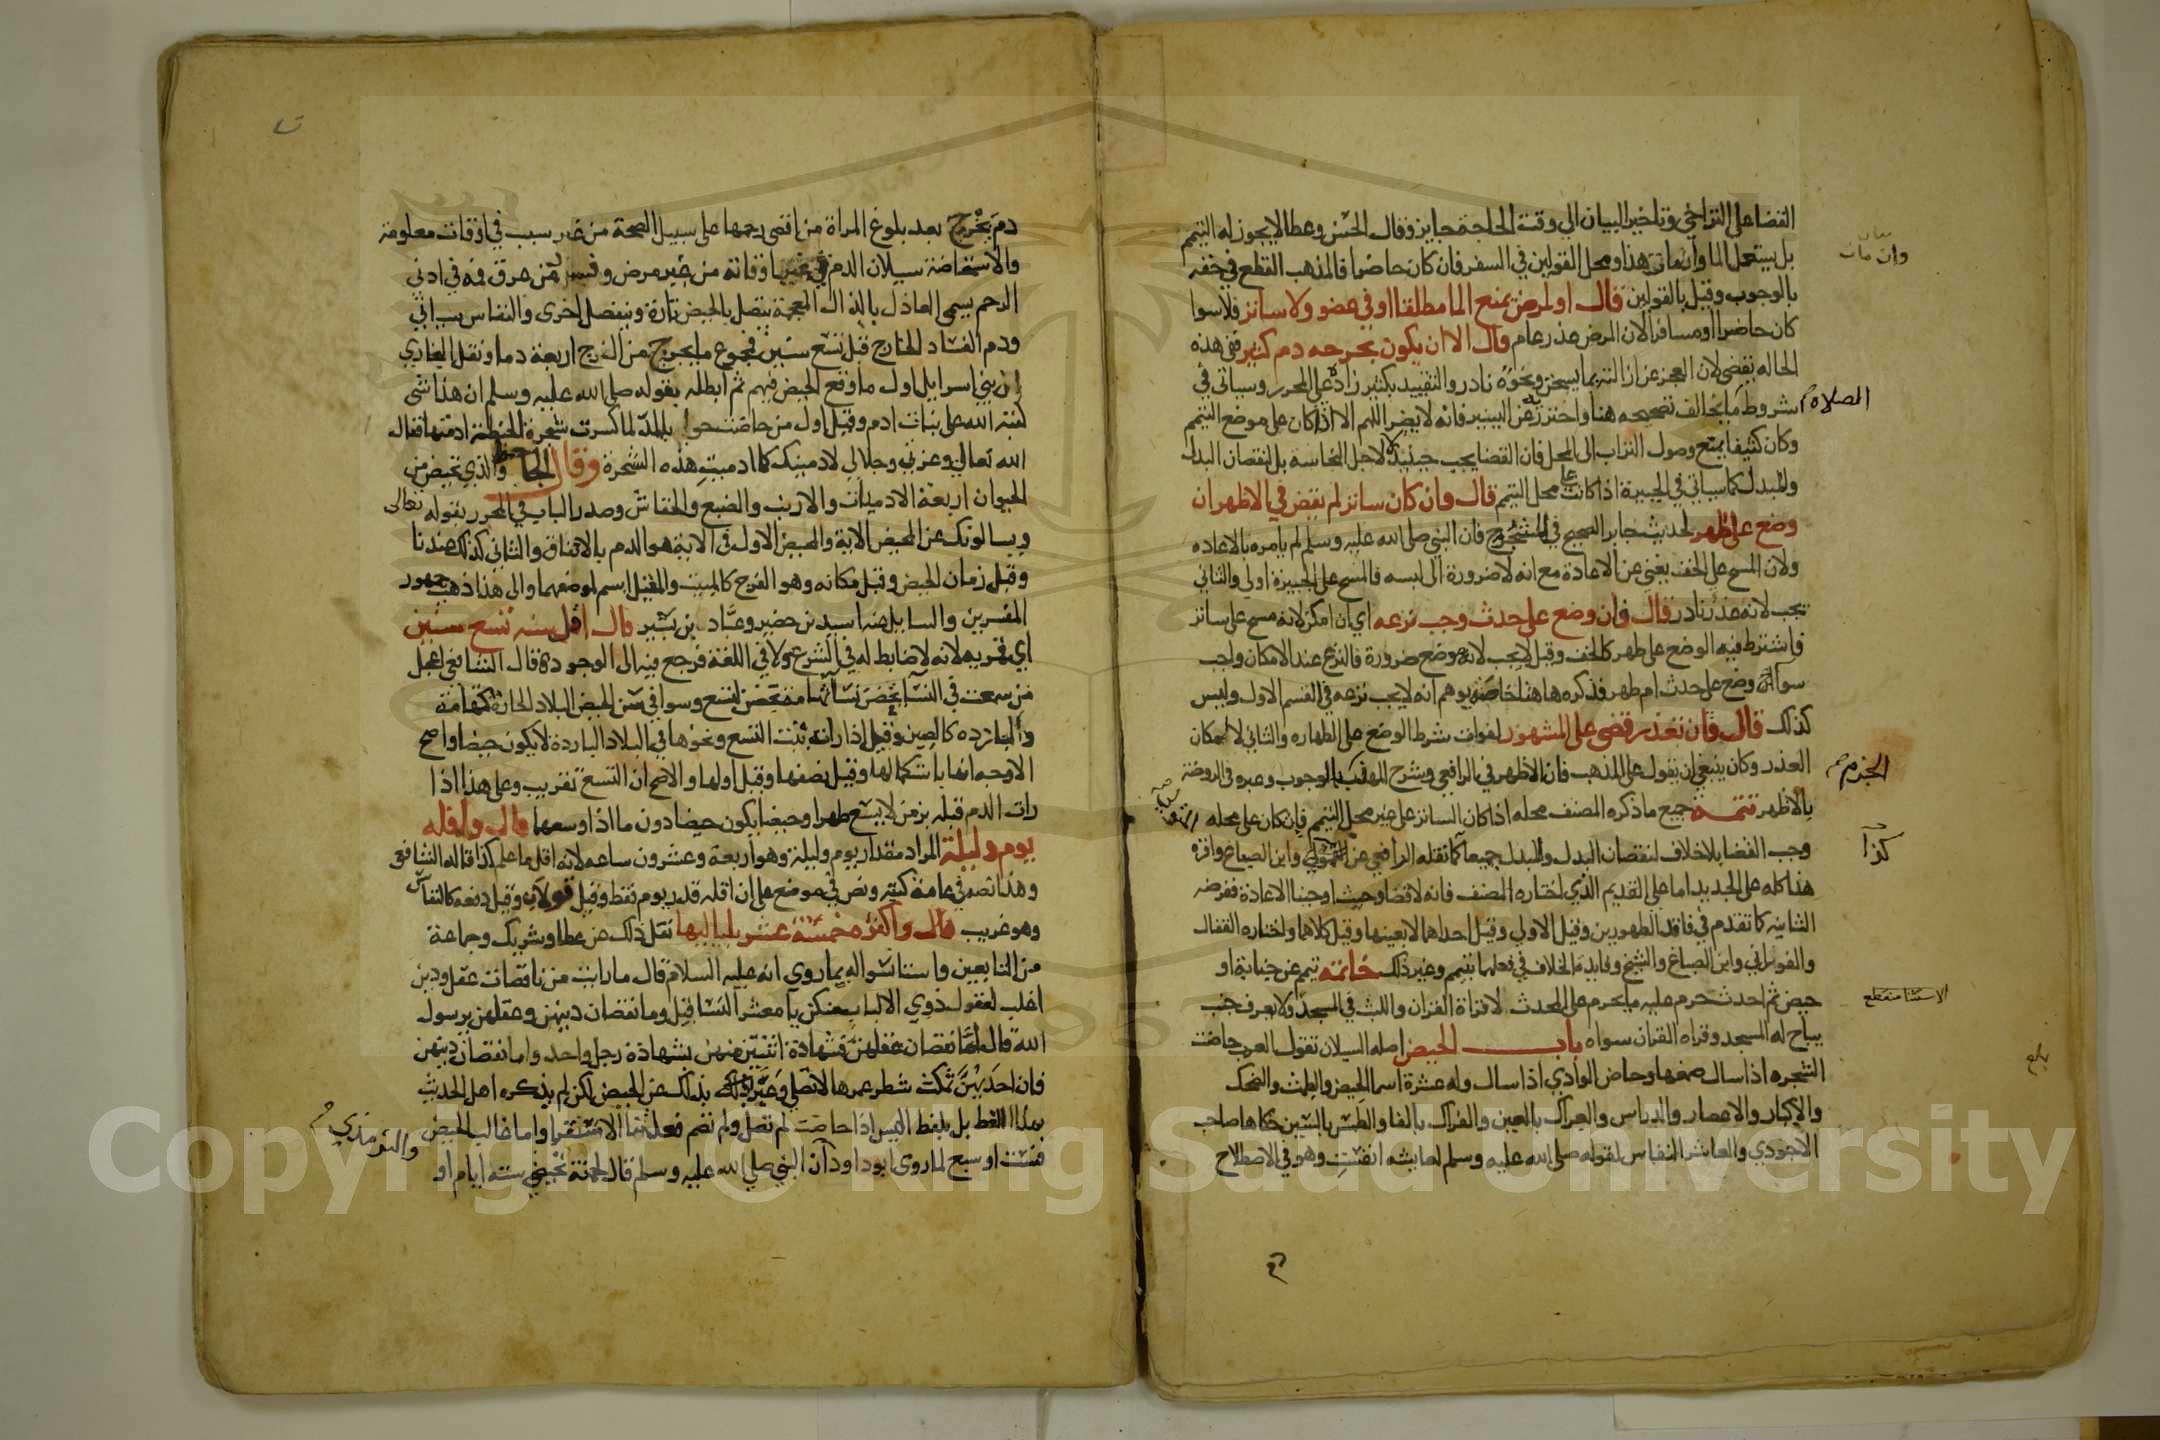 القضا على التراخي وتاخير البيان الي وقت الحاجة جايز وقال الحسن وعطا لايجوز له التيمم
بل يستعمل الما وان مات هذا ومحل القولين في السفر فان كان حاضرا فالمذهب القطع في خفه
بالوجوب وقيل بالقولين قال او لمرض يمنع الما مطلقا او في عضو ولا ساتر فلا سوا
كان حاضرا او مسافرا لان المرض عذر عام قال الا ان يكون بجرحه دم كثير ففي هذه
الحاله يقضي لان العجز عن ازالته بما يسخن ونحوه نادر والتقييد بكثير زاده علي المحرر وسياتي في
شروط ما يخالف تصحيحه هنا واحترز به عن اليسير فانه لا يضر اللهم الا اذا كان على موضع التيمم
وكان كثيفا يمنع وصول التراب الى المحل فان القضا يجب حينيذ لا لاجل النجاسة بل لنقصان البدل
والمبدل كما سياتي في الجبيرة اذا كانت على محل التيمم قال وان كان ساتر لم يقض في الاظهر ان
وضع على طهر لحديث جابر الصحيح في المشجوج فان النبي صلى الله عليه وسلم لم يامره بالاعاده
ولان المسح علي الخف يغني عن الاعادة مع انه لا ضرورة الى لبسه فالمسح على الجبيرة اولي والثاني
يجب لانه عذر نادر قال فان وضع على حدث وجب نزعه اي ان امكن لانه مسح على ساتر
فاشترط فيه الوضع على طهر كالخف وقيل لا يجب لانه موضع ضرورة فالنزع عند الامكان واجب
سوا وضع على حدث ام طهر فذكره ها هنا خاصة يوهم انه لا يجب نزعه في القسم الاول وليس
كذلك قال فان تعذر قضى على المشهور لفوات شرط الوضع على الطهاره والثاني لا لمكان
العذر وكان ينبغي ان يقول على المذهب فان الاظهر في الرافعي وشرح المهذب الوجوب وعبر في الروضة
بالاظهر تتمة جميع ما ذكره المصنف محله اذا كان الساتر على غير محل التيمم فان كان على محله
وجب القضا بلا خلاف لنقصان البدل والمبدل جميعا كما نقله الرافعي عن المتولي وابن الصباغ واقره
هذا كله على الجديد اما على القديم الذي اختاره المصنف فانه لا قضا وحيث اوجبنا الاعادة ففرضه
الثانيه كما تقدم في فاقد الطهورين وقيل الاولي وقيل احداهما لا بعينها وقيل كلاهما واختاره القفال
والفوراني وابن الصباغ والشيخ وفايدة الخلاف في فعلهما بتيمم وغير ذلك خاتمه تيمم عن جنابة او
حيض ثم احدث حرم عليه ما يحرم على المحدث لا قراة القران واللبث في المسجد ولا يعرف جنب
يباح له المسجد وقراه القران سواه باب الحيض اصله السيلان تقول العرب حاضت
الشجره اذا سال صمغها وحاض الوادي اذا سال وله عشرة اسما الحيض والطمث والضحك
والاكبار والاعصار والدراس والعراك بالعين والفراك بالفا والطمس بالسين حكاها صاحب
الاحوذي والعاشر النفاس لقوله صلى الله عليه وسلم لعايشه انفست وهو في الاصطلاح
وان مات
الصلاة
الجزم
كذا
الاستثنا منقطع
دم يخرج بعد بلوغ المراة من اقصى رحمها على سبيل الصحة من غير سبب في اوقات معلومة
والاستحاضة سيلان الدم في غير اوقاته من غير مرض وفساد من عرق فمه في ادنى
الرحم يسمى العاذل بالذال المعجمة يتصل بالحيض تارة وينفصل اخرى والنفاس سياتي
ودم الفساد الخارج قبل تسع سنين فمجموع ما يخرج من الفرج اربعة دما ونقل البخاري
ان بني اسرايل اول ما وقع الحيض فيهم ثم ابطله بقوله صلى الله عليه وسلم ان هذا شي
كتبه الله على بنات ادم وقيل اول من حاضت حوا بالمد لما كسرت شجرة الحنطة ادمتها فقال
الله تعالي وعزتي وجلالي لادمينك كما ادميت هذه الشجرة وقال الجاحظ والذي تحيض من
الحيوان اربعة الادميات والارنب والضبع والخفاش وصدر الباب في المحرر بقوله تعالى
ويسالونك عن المحيض الاية والمحيض الاول في الاية هو الدم بالاتفاق والثاني كذلك عندنا
وقيل زمان الحيض وقيل مكانه وهو الفرج كالمبيت والمقيل اسم لموضعهما والى هذا ذهب جمهور
المفسرين والسايل عنه اسيد بن حضير وعباد بن بشير قال اقل سنه تسع سنين
اي قمريه لانه لا ضابط له في الشرع ولا في اللغة فرجع فيه الى الوجود قال الشافعي اعجل
من سمعت في النسا يحضن نسا تهامة تحضن لتسع وسوا في سن الحيض البلاد الحارة كتهامة
والباردة كالصين وقيل اذا رات بنت التسع ونحوها في البلاد الباردة لا يكون حيضا واصح
الاوجه انها باستكمالها وقيل نصفها وقيل اولها والاصح ان التسع تقريب وعلى هذا اذا
رات الدم قبله بزمن لا يسع طهرا وحيضا يكون حيضا دون ما اذا وسعها قال واقله
يوم وليلة المراد مقدار يوم وليلة وهو اربعة وعشرون ساعه لانه اقل ما علم كذا قاله الشافعي
وهذا نصه في عامة كتبه ونص في موضع على ان اقله قدر يوم فقط وقيل قولان وقيل دفعه كالنفاس
وهو غريب قال واكثره خمسة عشر بلياليها نقل ذلك عن عطا وشريك وجماعة
من التابعين واستانسوا له بما روي انه عليه السلام قال ما رايت من ناقصات عقل ودين
اغلب لعقول ذوي الالباب منكن يا معشر النسا قيل وما نقصان دينهن وعقلهن يرسول
الله قال اما نقصان عقلهن فشهادة اثنتين منهن بشهادة رجل واحد واما نقصان دينهن
فان احديهن تمكث شطر عمرها لا تصلي وعبر بذلك عن الحيض لكن لم يذكره اهل الحديث
بهذا اللفظ بل بلفظ اليس اذا حاضت لم تصل ولم تصم فعلمنا الاستقرا واما غالب الحيض
فست او سبع لما روى ابو داود ان النبي صلي الله عليه وسلم قال لحمنة تحيضي سته ايام او
والترمذي
Copyright © King Saud University